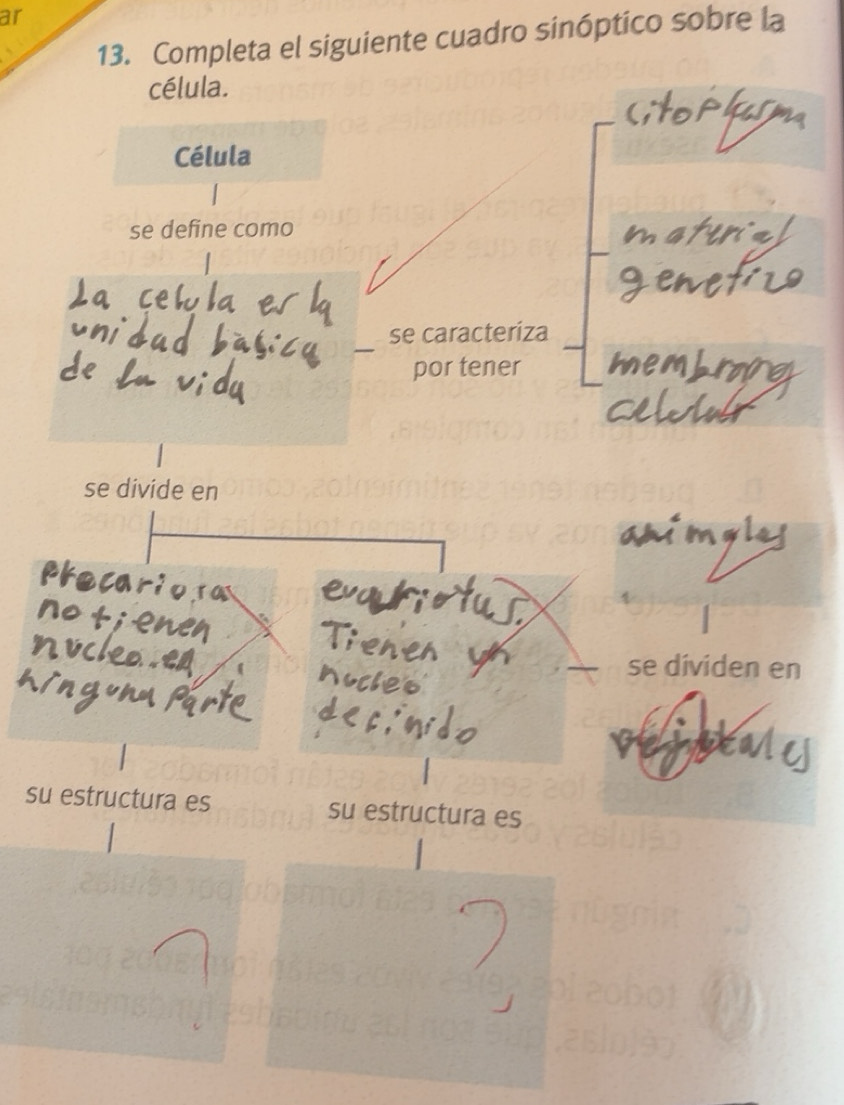 ar
13. Completa el siguiente cuadro sinóptico sobre la
célula.
Célula
se define como
La celula es la
unidad basica
de la vida
se caracteriza
por tener
citoplasma
material
genetico
membrana
celular
se divide en
procariora
no tienen
nucleo.en
ninguna parte
eucariotus.
Tienen un
nucleo
definido
animales
se dividen en
vejetales
su estructura es
su estructura es
?
?